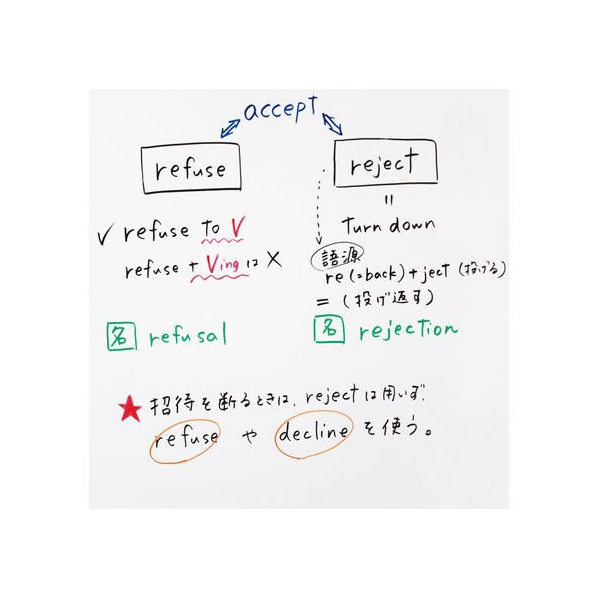 accept
refuse
reject
=
✓ refuse to V
refuse + Vingは×
Turn down
語源
re(=back)+ject(投げる)
=(投げ返す)
名 refusal
名 rejection
★招待を断るときは、rejectは用いず、
refuse や decline を使う。